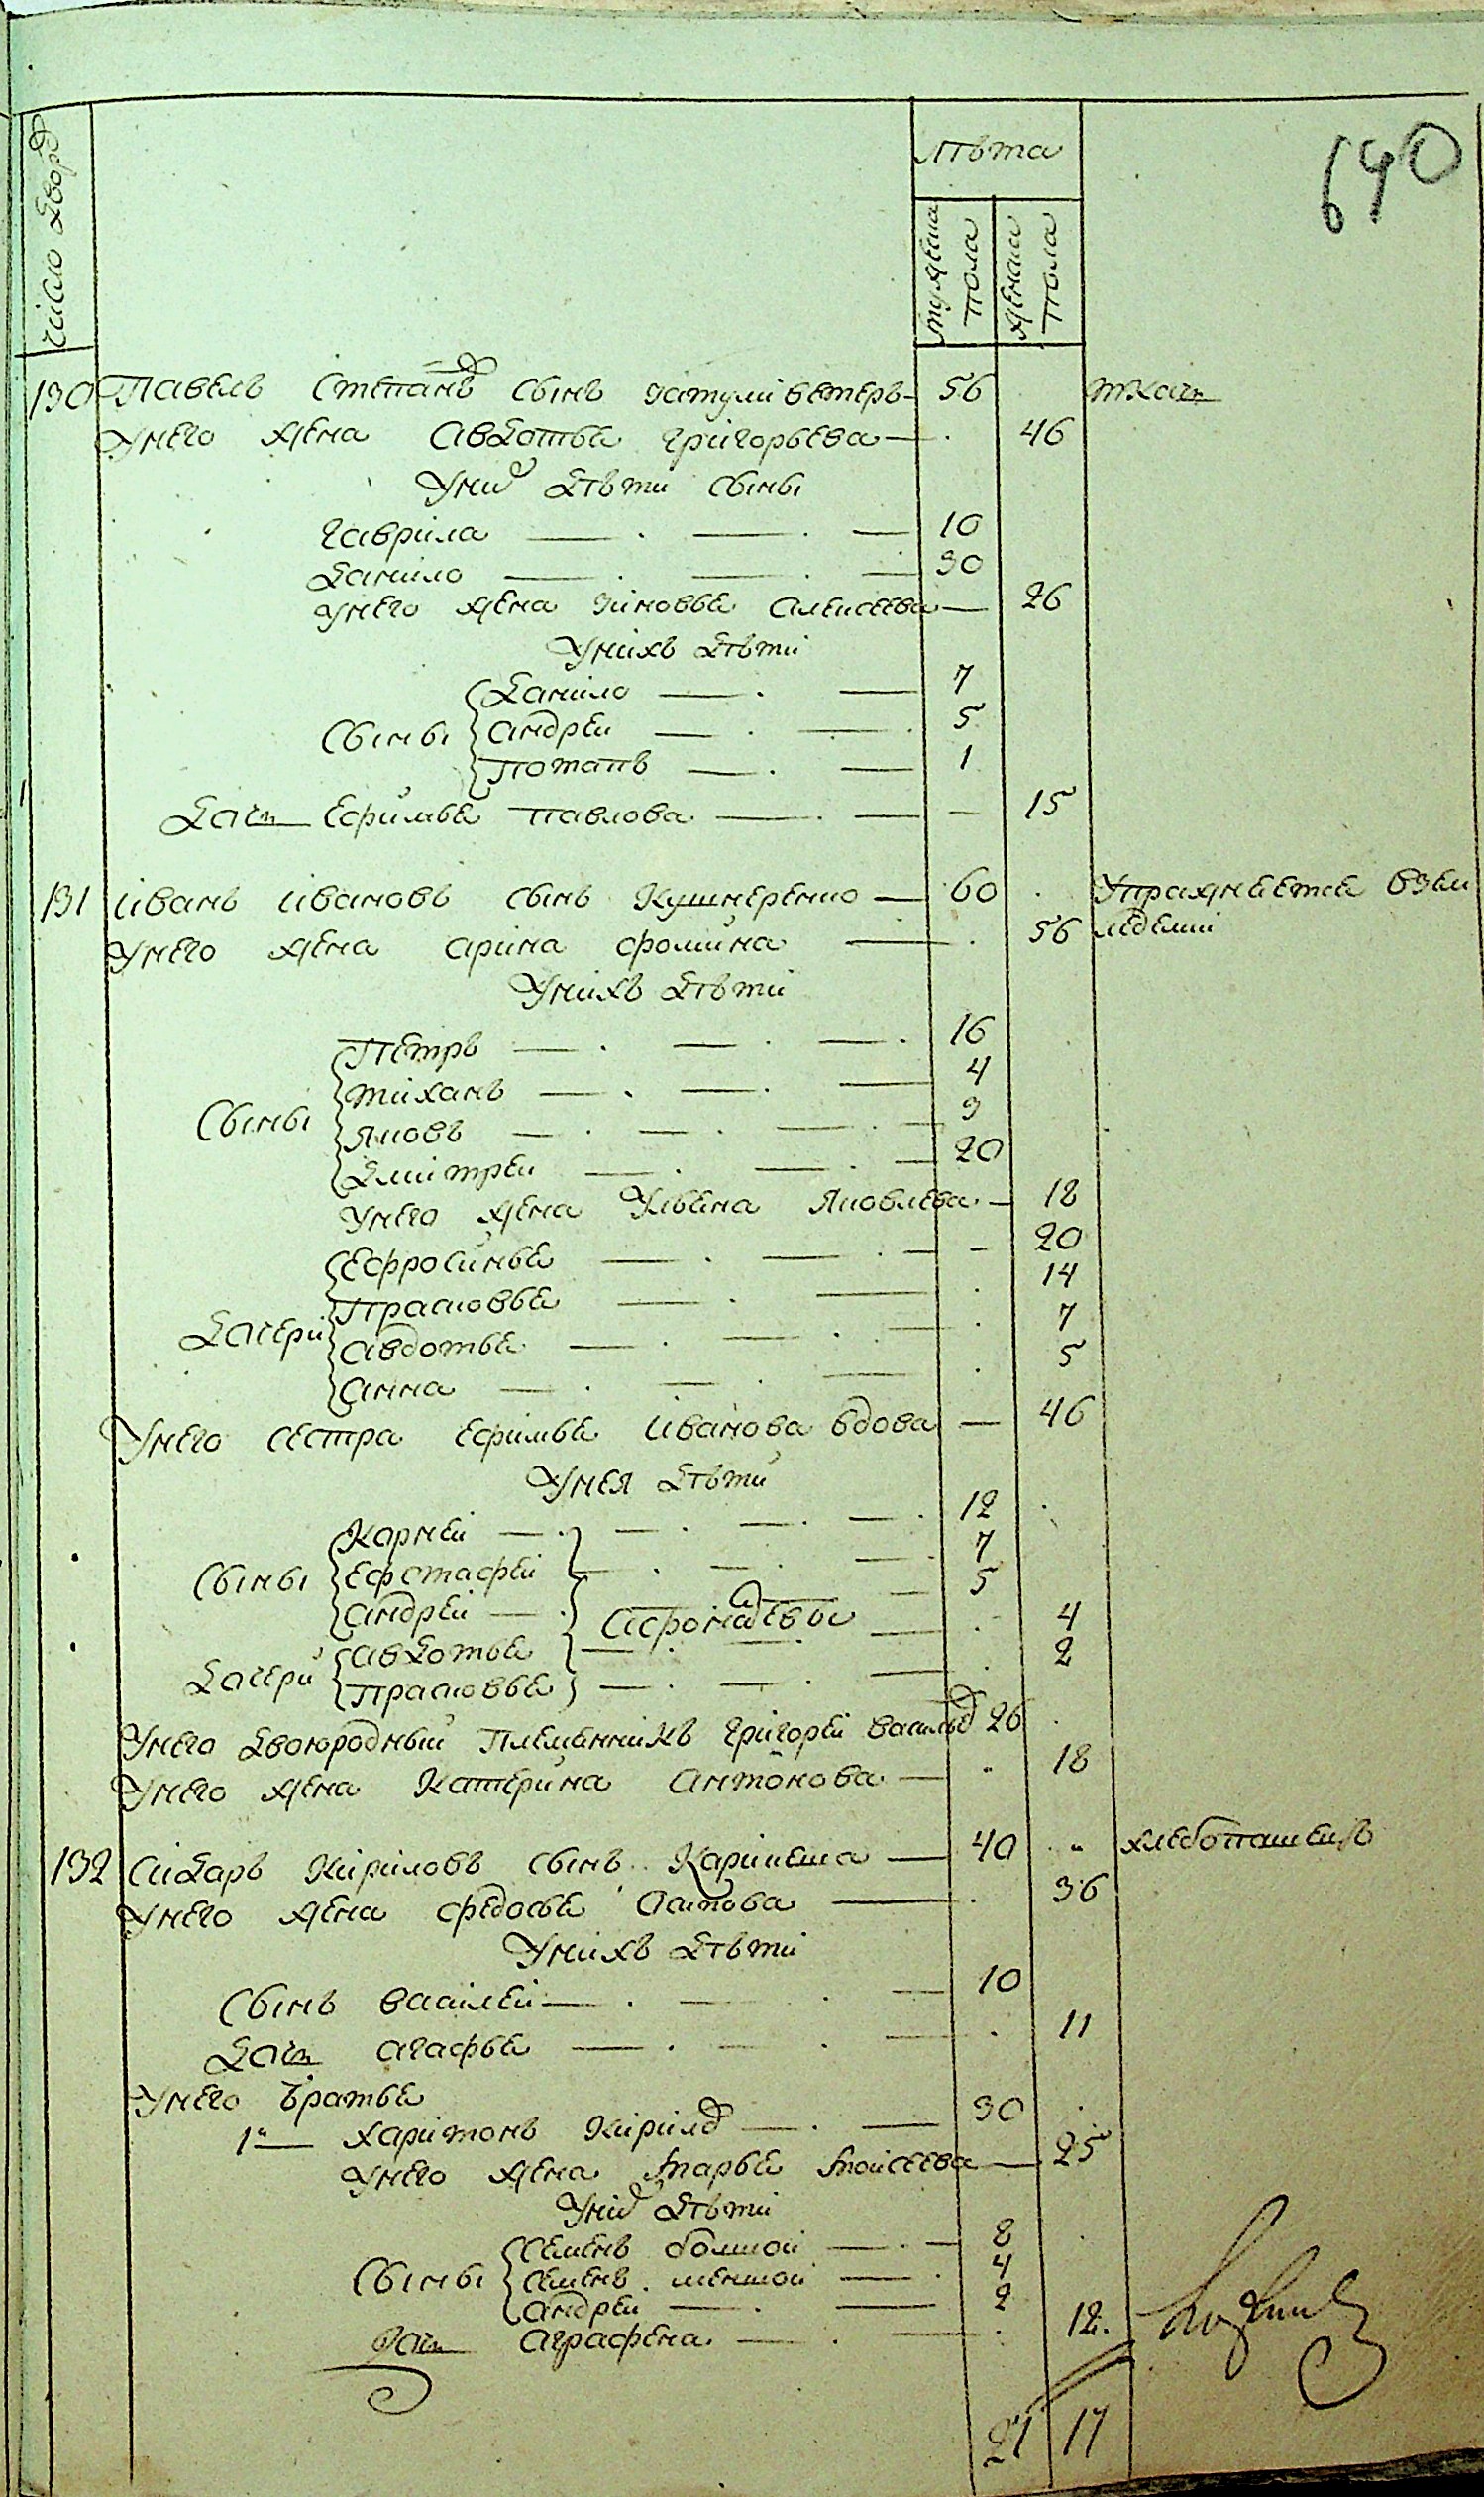 число двор
лѣта
мужеска пола
женска пола
690
130 Павелъ Степанов сынъ Затуливетеръ 56 ткачь
У него жена Авдотья Григорьева 46
У них дѣти сыны
Гаврила 10
Данило 30
У него жена Зиновья Алексеева 26
У нихъ дѣти
Данило 7
Сыны Андрей 5
Потапъ 1
Дочь Ефимья Павлова 15
131 Иванъ Ивановъ сынъ Кушнеренко 60 Упражняется в зем
леделии
У него жена Арина Фомина 56
У нихъ дѣти
Петръ 16
Тиханъ 4
Сыны Яковъ 9
Дмитрей 20
У него жена Ульяна Яковлева 18
Ефросинья 20
Прасковья 14
Дочери Авдотья 7
Анна 5
У него сестра Ефимья Иванова вдова 46
У нея дѣти
Карней 12
Сыны Ефстафей 7
Андрей 5
Авдотья 4
Дочери Прасковья 2
У него двоюродный племянникъ Григорей Васильев 26
У него жена Катерина Антонова 18
132 Сидаръ Кириловъ сынъ 40 хлебопашецъ
У него жена Федосья Осипова 36
У нихъ дѣти
Сынъ Василей 10
Дочь Агафья 11
У него братья
1й Харитонъ Кирилов 30
У него жена Марья Моисеева 25
У них дѣти
Семенъ болшой 8
Сыны Семенъ меншой 4
Андрей 2
Дочь Аграфена 12
21 17